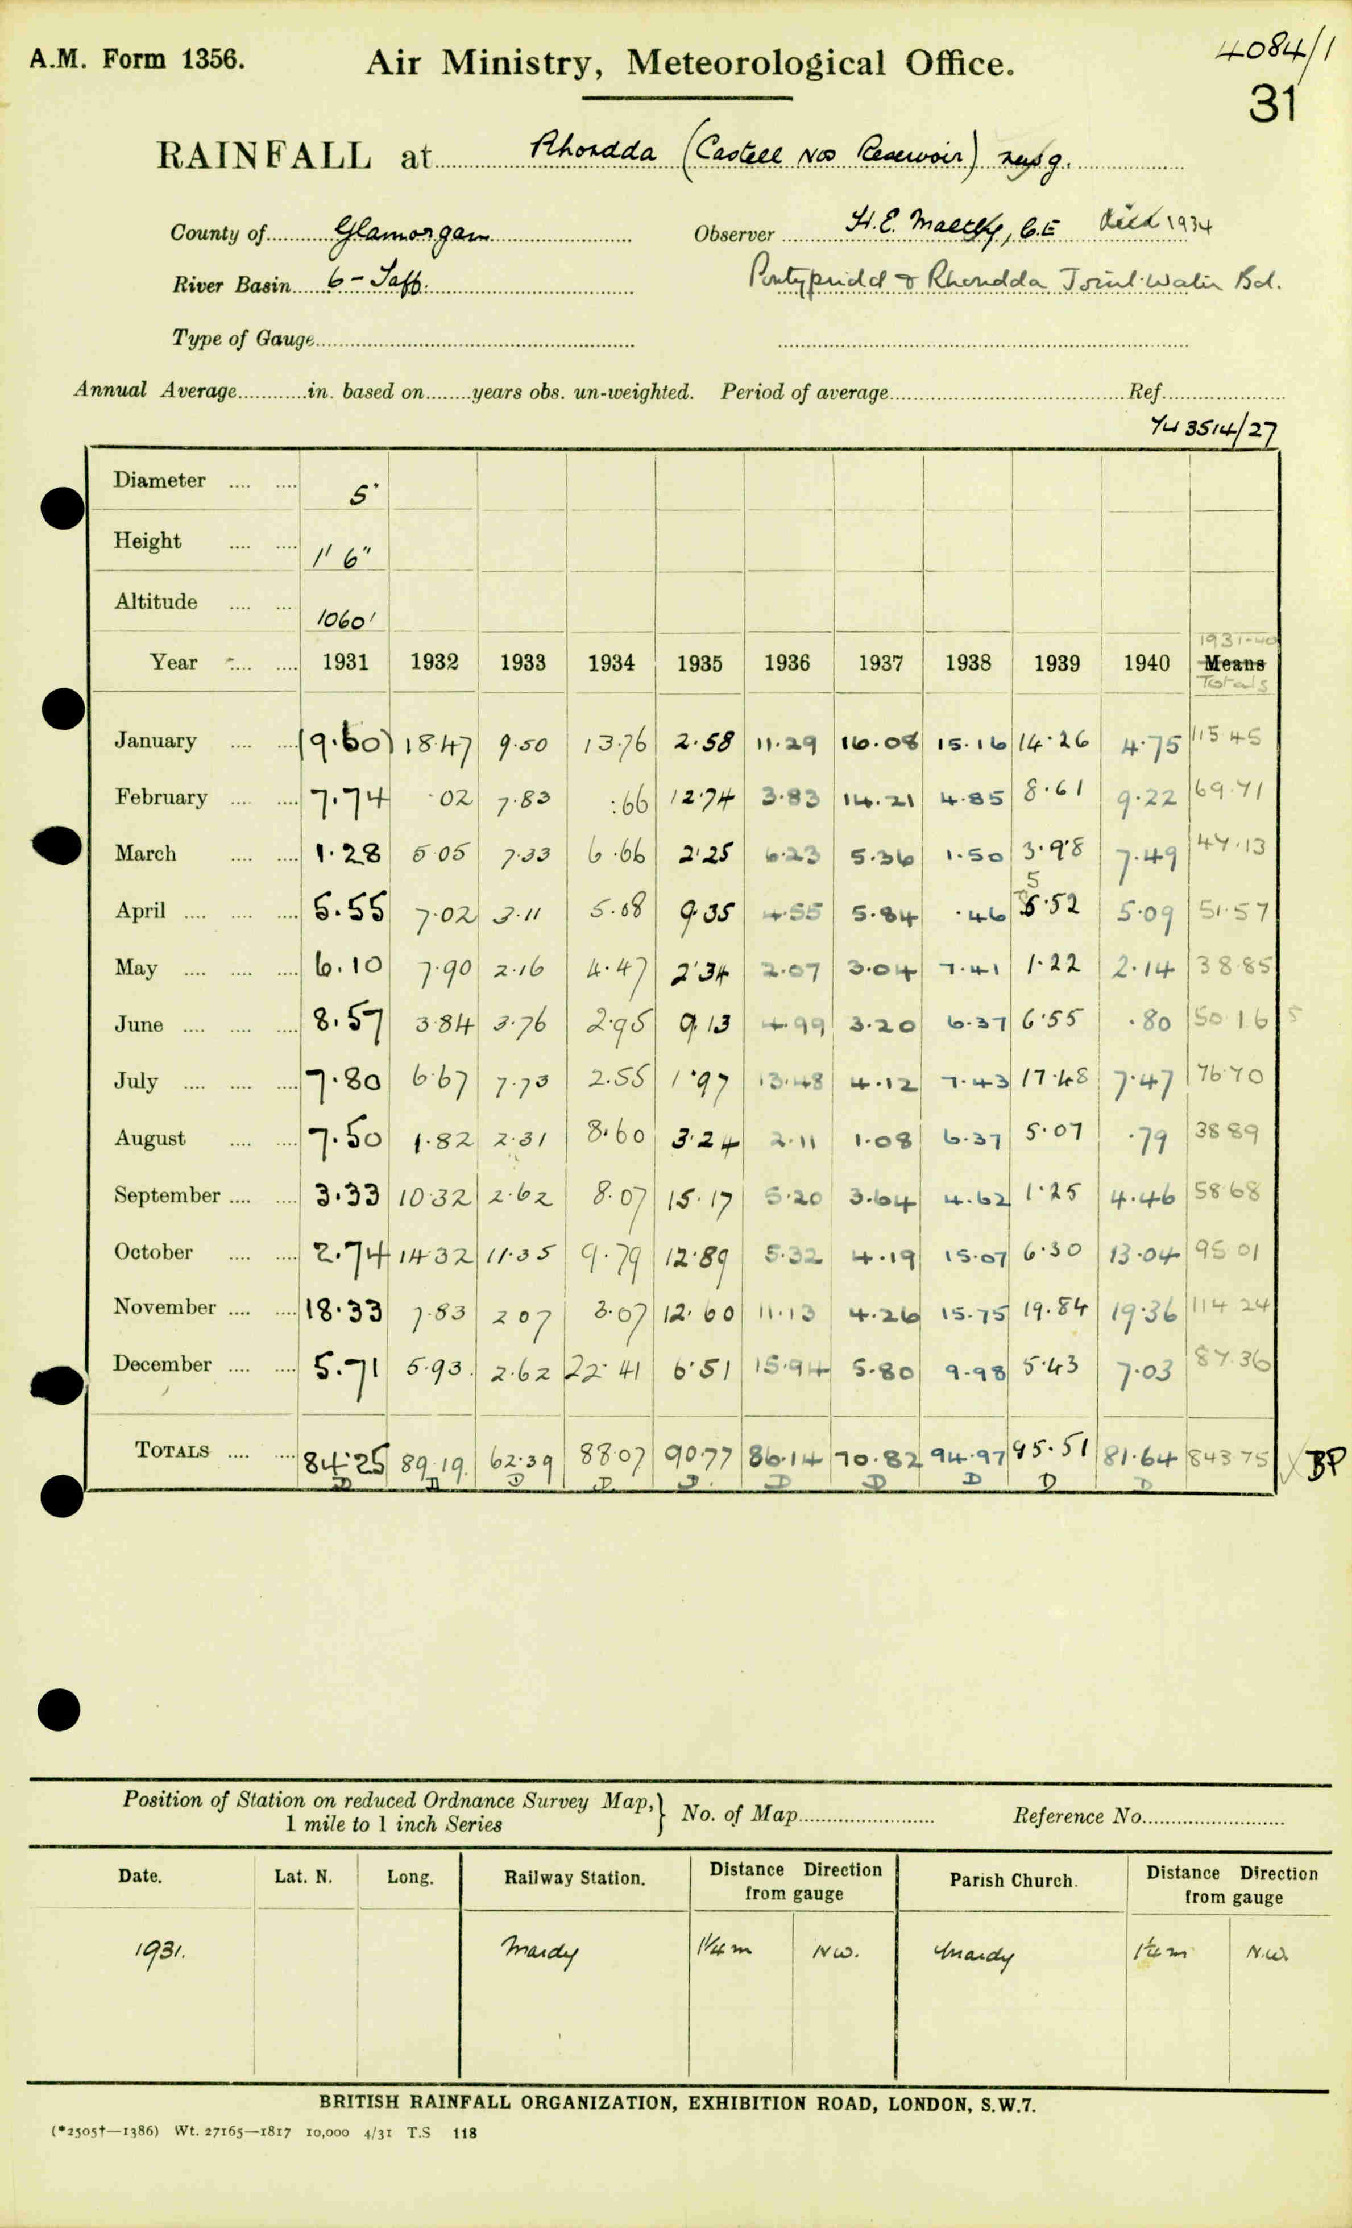 A.M. Form 1356. Air Ministry, Meteorological Office. 4084/1
31
RAINFALL at Rhondda (Castell Nos Reservoir)
County of Glamorgan Observer H.E. , C.E. died 1934
River Basin 6 - Taff. Pontypridd & Rhondda Joint Water Bd.
Type of Gauge
Annual Average in. based on years obs. un-weighted. Period of average Ref.
3514/27
Diameter 5"
Height 1' 6"
Altitude 1060'
1931-40
Year 1931 1932 1933 1934 1935 1936 1937 1938 1939 1940 Means
Totals
January (9.60) 18.47 9.50 13.76 2.58 11.29 16.08 15.16 14.26 4.75 115.45
February 7.74 .02 7.83 .66 12.74 3.83 14.21 4.85 8.61 9.22 69.71
March 1.28 5.05 7.33 6.66 2.25 6.23 5.36 1.50 3.98 7.49 47.13
April 5.55 7.02 3.11 5.08 9.35 4.55 5.84 .46 5.52 5.09 51.57
May 6.10 7.90 2.16 4.47 2.34 2.07 3.04 7.41 1.22 2.14 38.85
June 8.57 3.84 3.76 2.95 9.13 4.99 3.20 6.37 6.55 .80 50.16 5
July 7.80 6.67 7.73 2.55 1.97 13.48 4.12 7.43 17.48 7.47 76.70
August 7.50 1.82 2.31 8.60 3.24 2.11 1.08 6.37 5.07 .79 38.89
September 3.33 10.32 2.62 8.07 15.17 5.20 3.64 4.62 1.25 4.46 58.68
October 2.74 14.32 11.35 9.79 12.89 5.32 4.19 15.07 6.30 13.04 95.01
November 18.33 7.83 2.07 3.07 12.60 11.13 4.26 15.75 19.84 19.36 114.24
December 5.71 5.93 2.62 22.41 6.51 15.94 5.80 9.98 5.43 7.03 87.36
TOTALS 84.25 89.19 62.39 88.07 90.77 86.14 70.82 94.97 95.51 81.64 843.75 BP
D D D D D D D D D D
Position of Station on reduced Ordnance Survey Map, 1 mile to 1 inch Series } No. of Map Reference No.
Date. Lat. N. Long. Railway Station. Distance Direction from gauge Parish Church. Distance Direction from gauge
1931. Mardy 1¼ m NW. Mardy 1¼ m N.W.
BRITISH RAINFALL ORGANIZATION, EXHIBITION ROAD, LONDON, S.W.7.
(*2505†—1386) Wt. 27165—1817 10,000 4/31 T.S 118